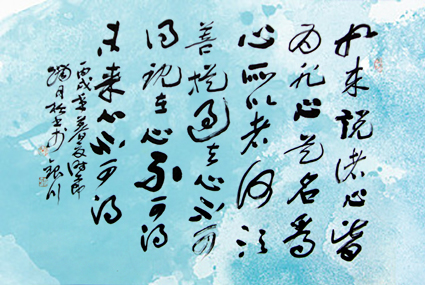 如来说诸心皆
为非心是名为
心所以者何须
菩提过去心不可
得现在心不可得
未来心不可得
丙戌年暮夏时节
月於 银川